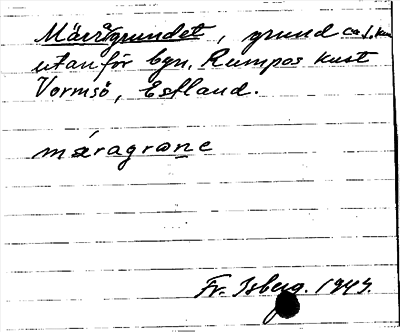 Märagrundet, grund ca 1 km
utanför byn Rumpos kust
Vormsö, Estland.
märagrune
Fr. Isberg. 1944.